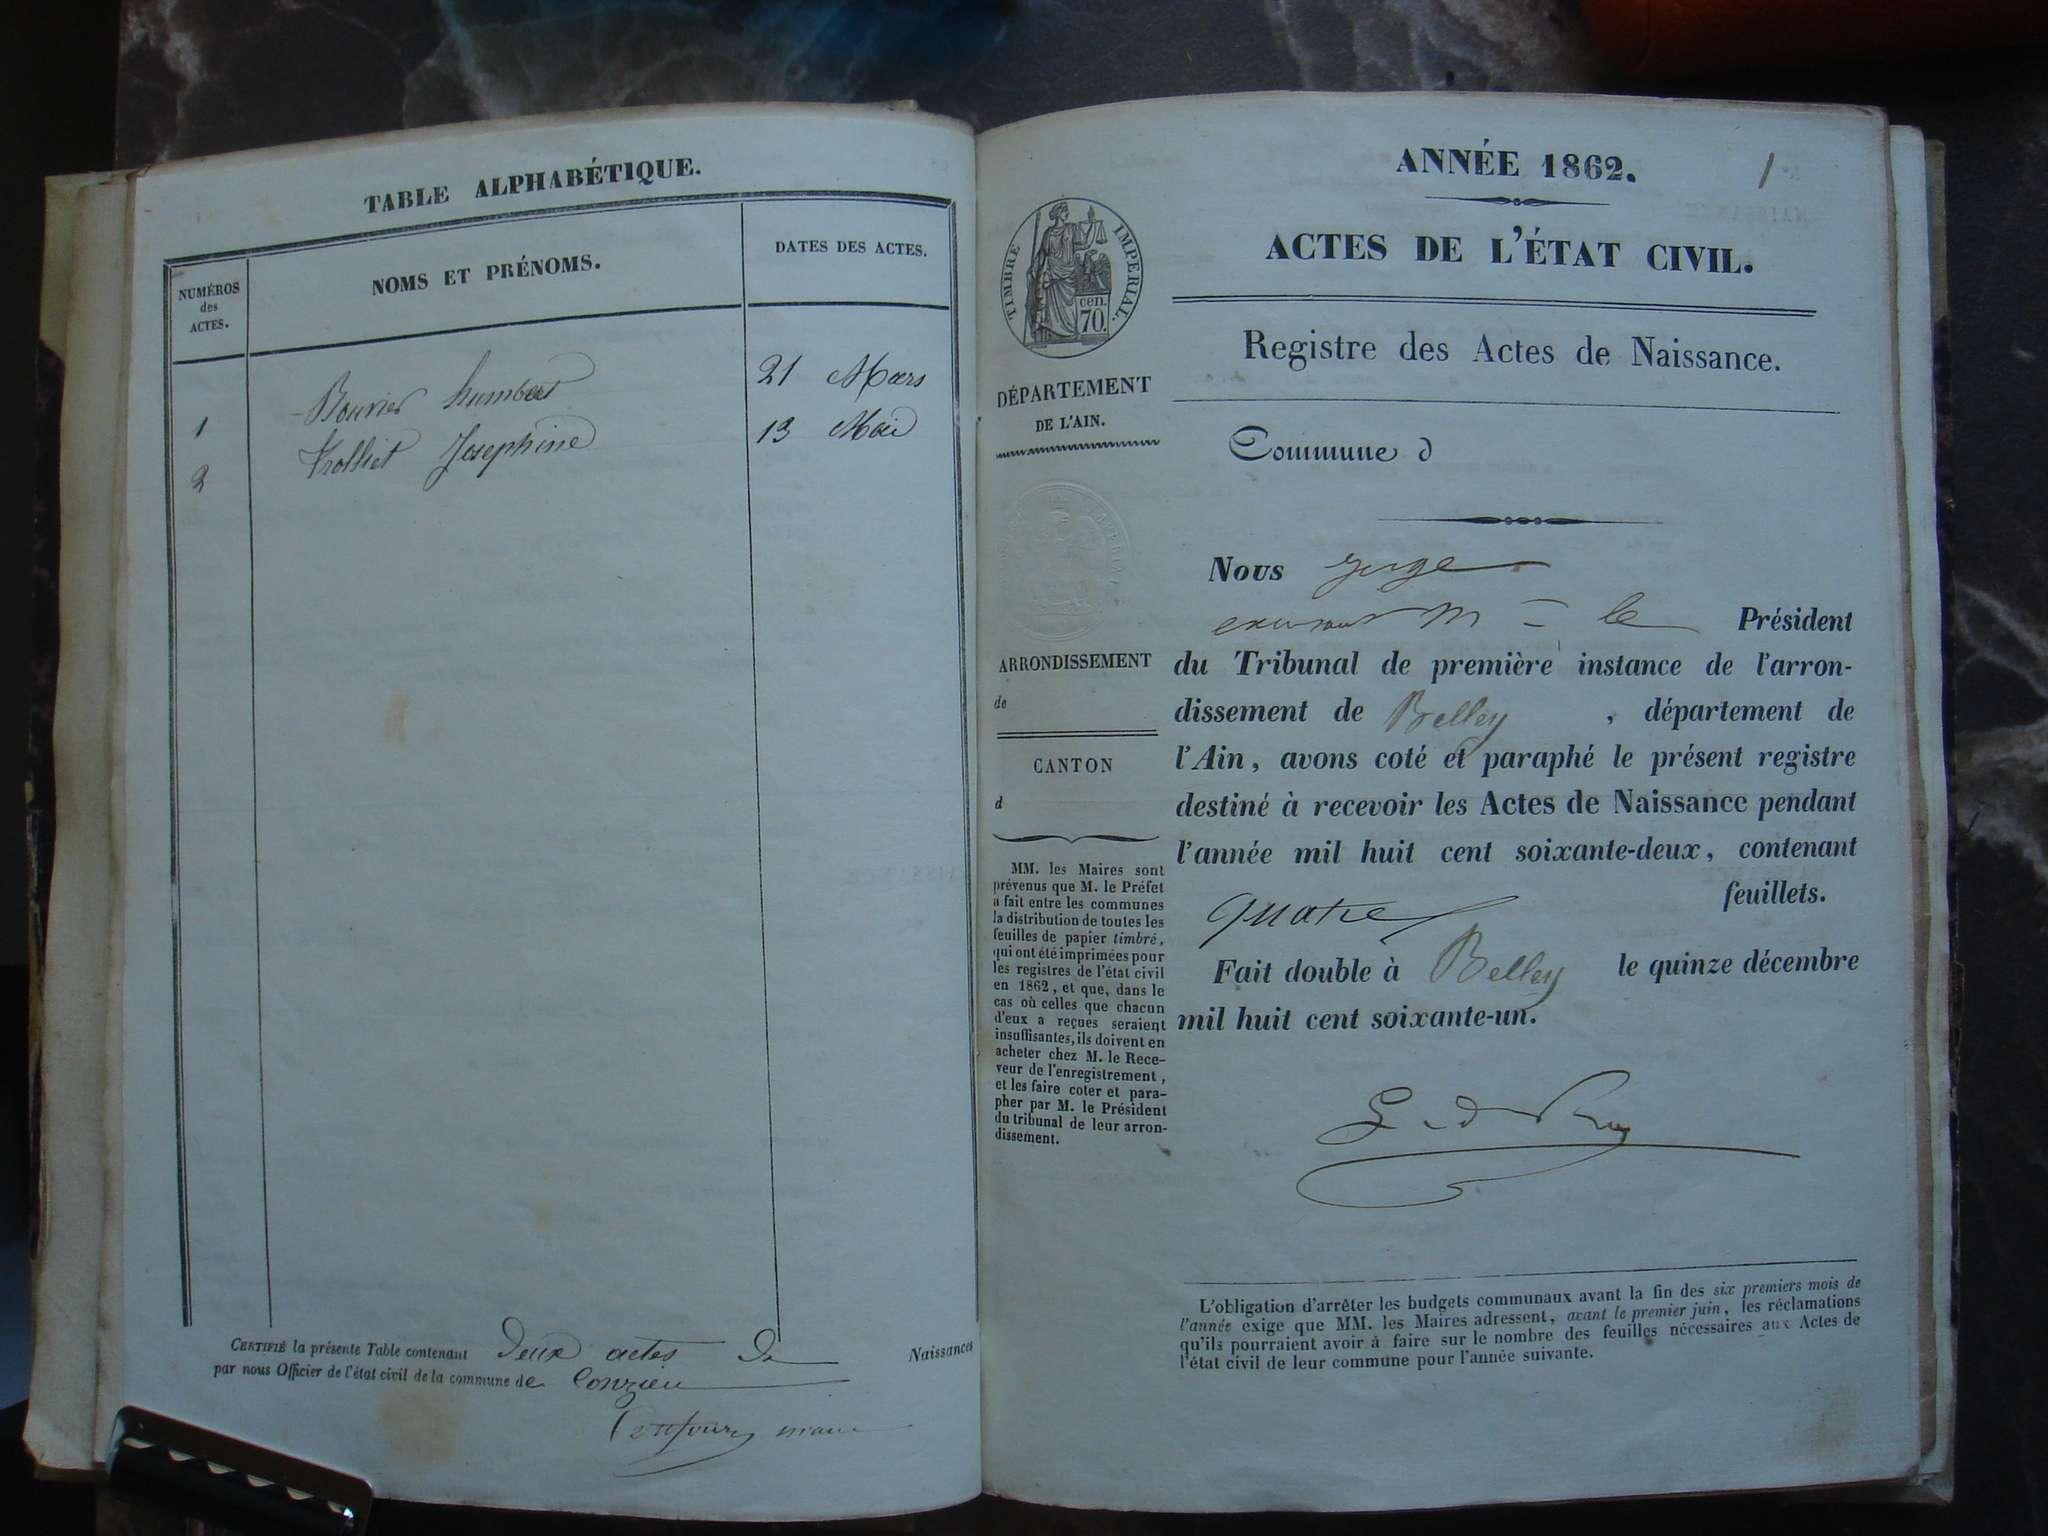 TABLE ALPHABÉTIQUE.
NUMÉROS
des
ACTES.
NOMS ET PRÉNOMS.
DATES DES ACTES.
1 Bouvier humbert 21 Mars
2 Trolliet Josephine 13 Mai
CERTIFIÉ la présente Table contenant deux actes de Naissances
par nous Officier de l'état civil de la commune de Conzieu
maire
ANNÉE 1862.
1
ACTES DE L'ÉTAT CIVIL.
Registre des Actes de Naissance.
TIMBRE IMPERIAL.
cen.
70.
DÉPARTEMENT
DE L'AIN.
ARRONDISSEMENT
de
CANTON
d
MM. les Maires sont
prévenus que M. le Préfet
a fait entre les communes
la distribution de toutes les
feuilles de papier timbré,
qui ont été imprimées pour
les registres de l'état civil
en 1862, et que, dans le
cas où celles que chacun
d'eux a reçues seraient
insuffisantes, ils doivent en
acheter chez M. le Rece-
veur de l'enregistrement,
et les faire coter et para-
pher par M. le Président
du tribunal de leur arron-
dissement.
Commune d
Nous juge
M le Président
du Tribunal de première instance de l'arron-
dissement de Belley, département de
l'Ain, avons coté et paraphé le présent registre
destiné à recevoir les Actes de Naissance pendant
l'année mil huit cent soixante-deux, contenant
quatre feuillets.
Fait double à Belley le quinze décembre
mil huit cent soixante-un.
L'obligation d'arrêter les budgets communaux avant la fin des six premiers mois de
l'année exige que MM. les Maires adressent, avant le premier juin, les réclamations
qu'ils pourraient avoir à faire sur le nombre des feuilles nécessaires aux Actes de
l'état civil de leur commune pour l'année suivante.